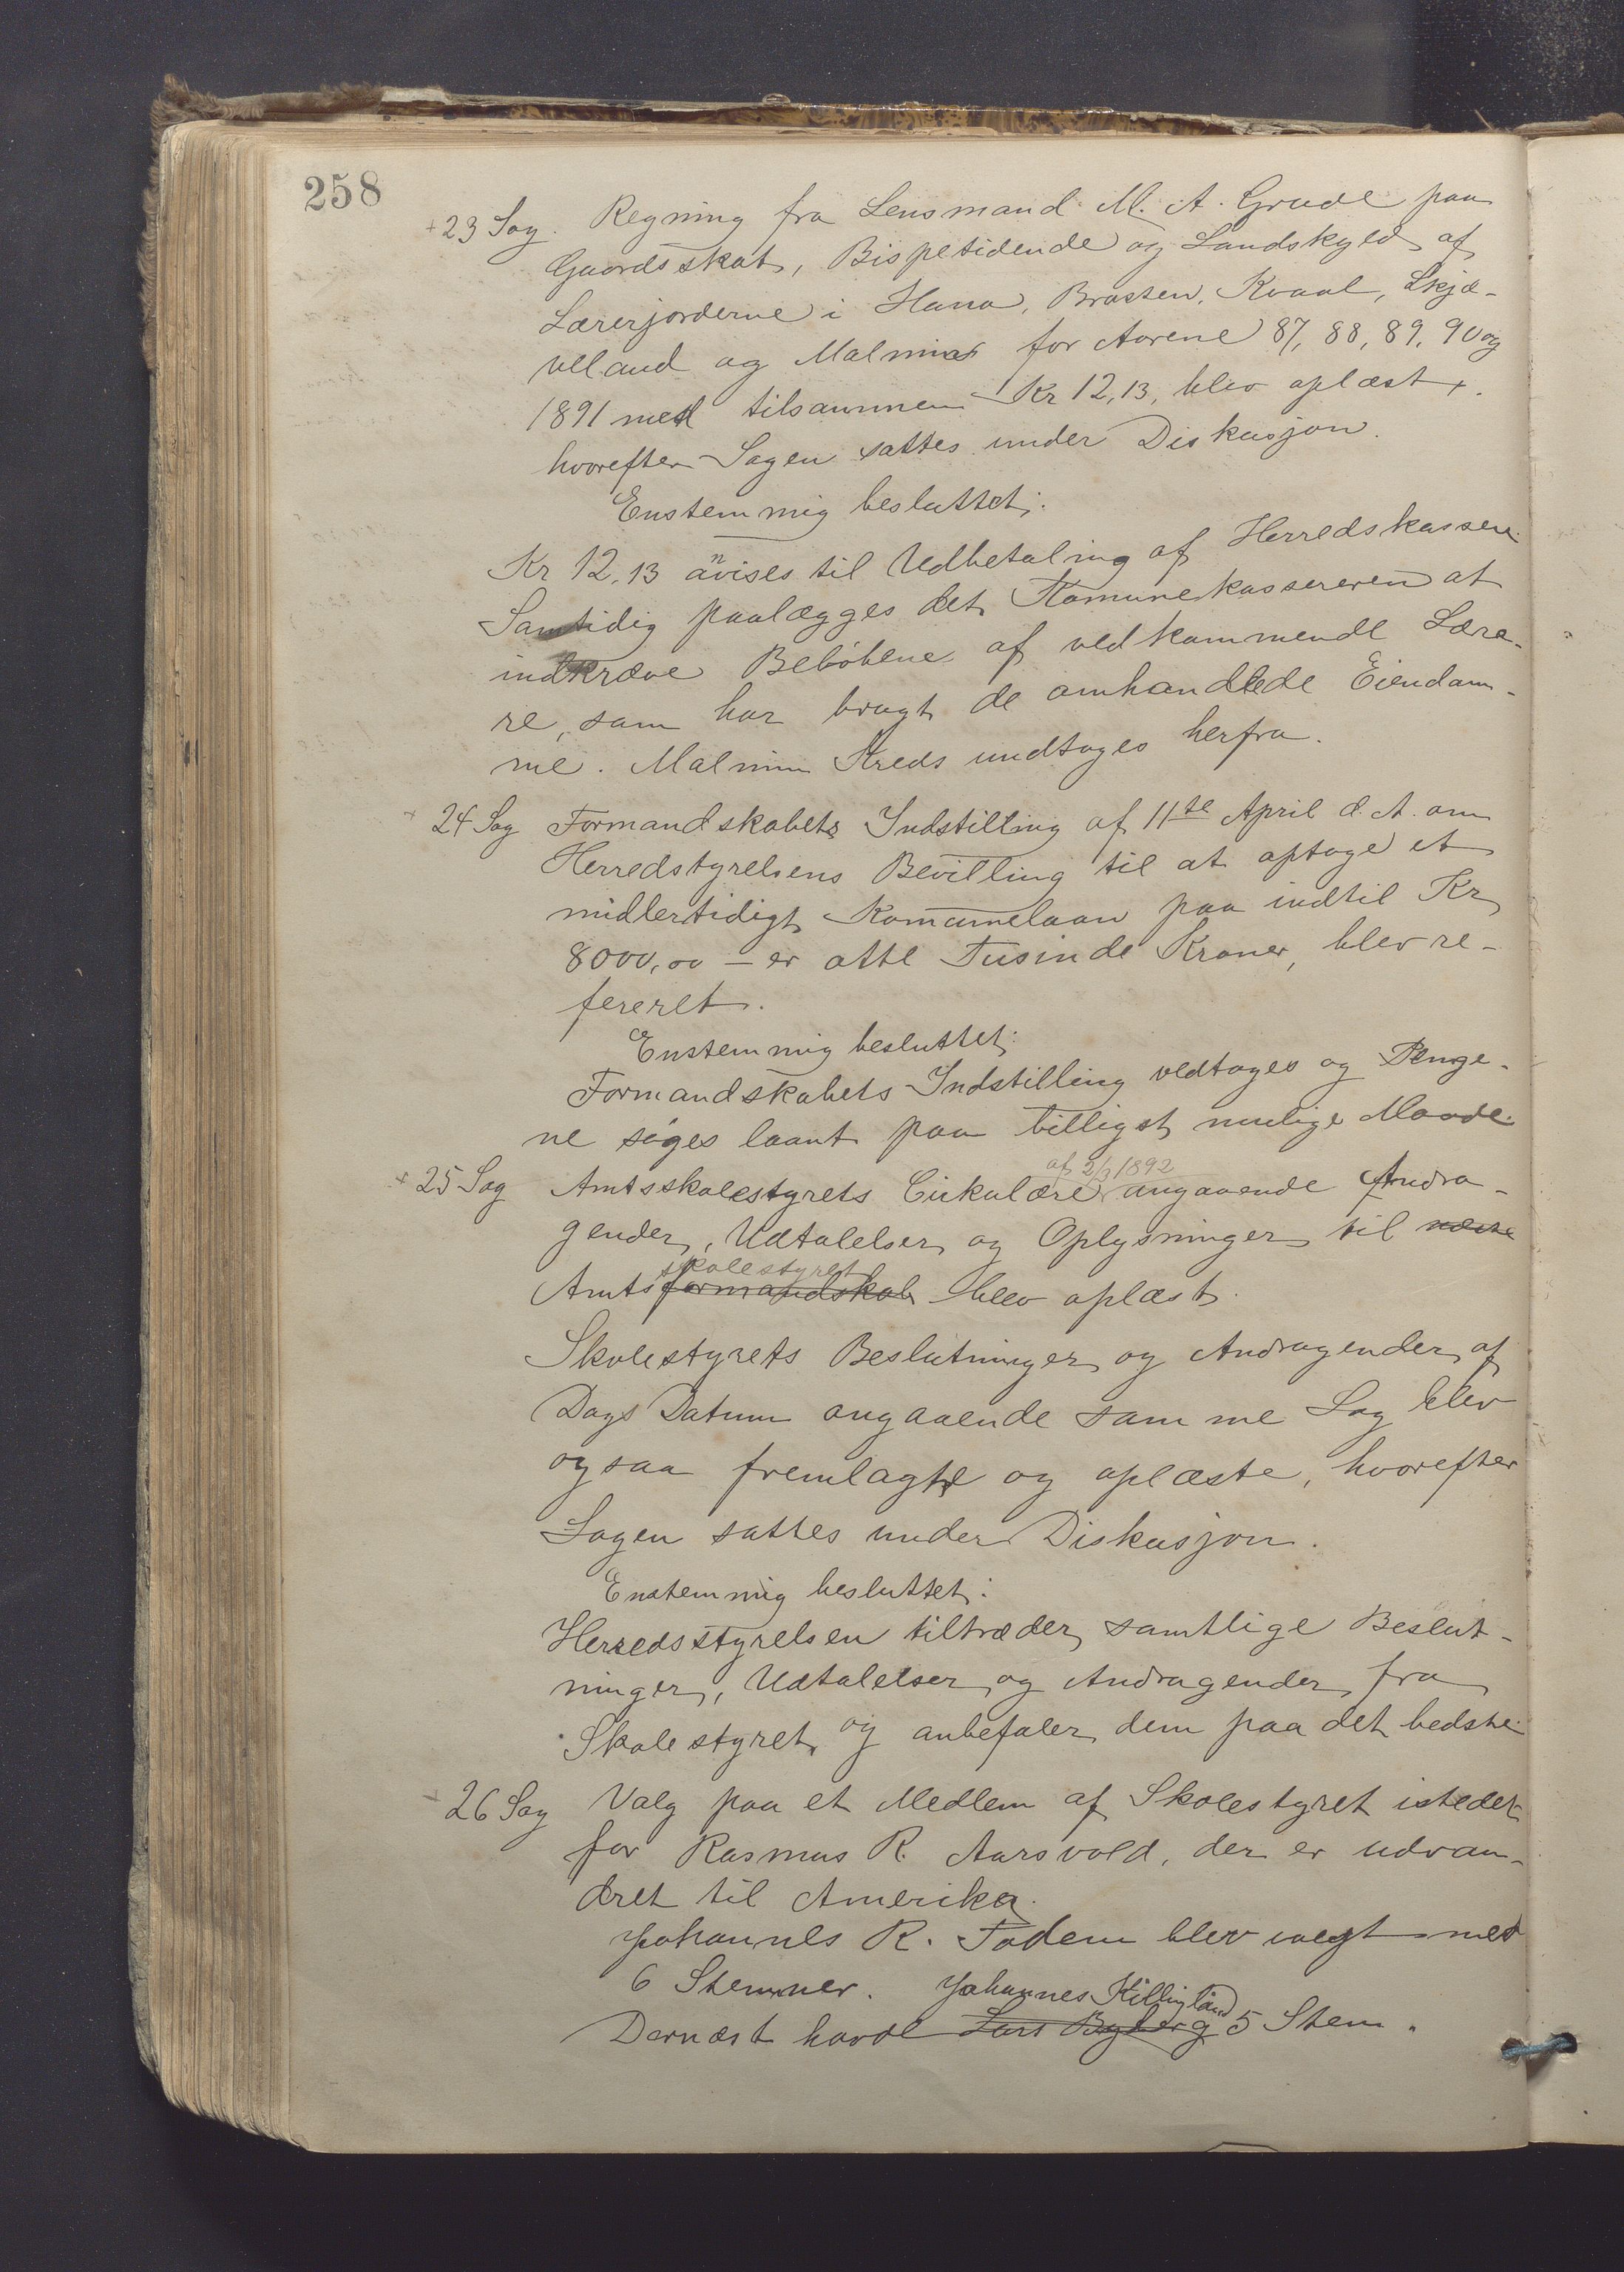 258
+ 23 Sag. Regning fra Lensmand M. A. Grude paa
Gaardsskat, Bispetidende og Landskyld af
Lærerjorderne i Hana, Brasten, Kvaal, Skjæ-
velland og Malmin for Aarene 87, 88, 89, 90 og
1891 med tilsammen Kr 12,13, blev oplæst +.
hvorefter Sagen sattes under Diskusjon.
Enstemmig besluttet:
Kr 12,13 anvises til Udbetaling af Herredskassen.
Samtidig paalægges det Komunekassereren at
indkræve Beløbene af vedkommende Lære-
re, som har brugt de omhandlede Eiendom-
me. Malmin Kreds undtages herfra.
+ 24 Sag Formandskabets Indstilling af 11te April d. A. om
Herredstyrelsens Bevilling til at optage et
midlertidigt Komunelaan paa indtil Kr
8000,00 – er otte Tusinde Kroner, blev re-
fereret.
Enstemmig besluttet:
Formandskabets Indstilling vedtages og Penge-
ne søges laant paa billigst mulige Maade.
af 2/3 1892
+ 25 Sag Amtsskolestyrets Cirkulære angaaende Andra-
gender, Udtalelser og Oplysninger til næste
skolestyret
Amtsformandskab blev oplæst.
Skolestyrets Beslutninger og Andragender af
Dags Datum angaaende samme Sag blev
ogsaa fremlagte og oplæste, hvorefter
Sagen sattes under Diskusjon.
Enstemmig besluttet:
Herredsstyrelsen tiltræder samtlige Beslut-
ninger, Udtalelser og Andragender fra
Skolestyret og anbefaler dem paa det bedste.
+ 26 Sag Valg paa et Medlem af Skolestyret istedet
for Rasmus R. Aarsvold, der er udvan-
dret til Amerika.
Johannes R. Fodem blev valgt med
6 Stemmer. Johannes Killingland
Dernæst havde Lars Byberg 5 Stem.